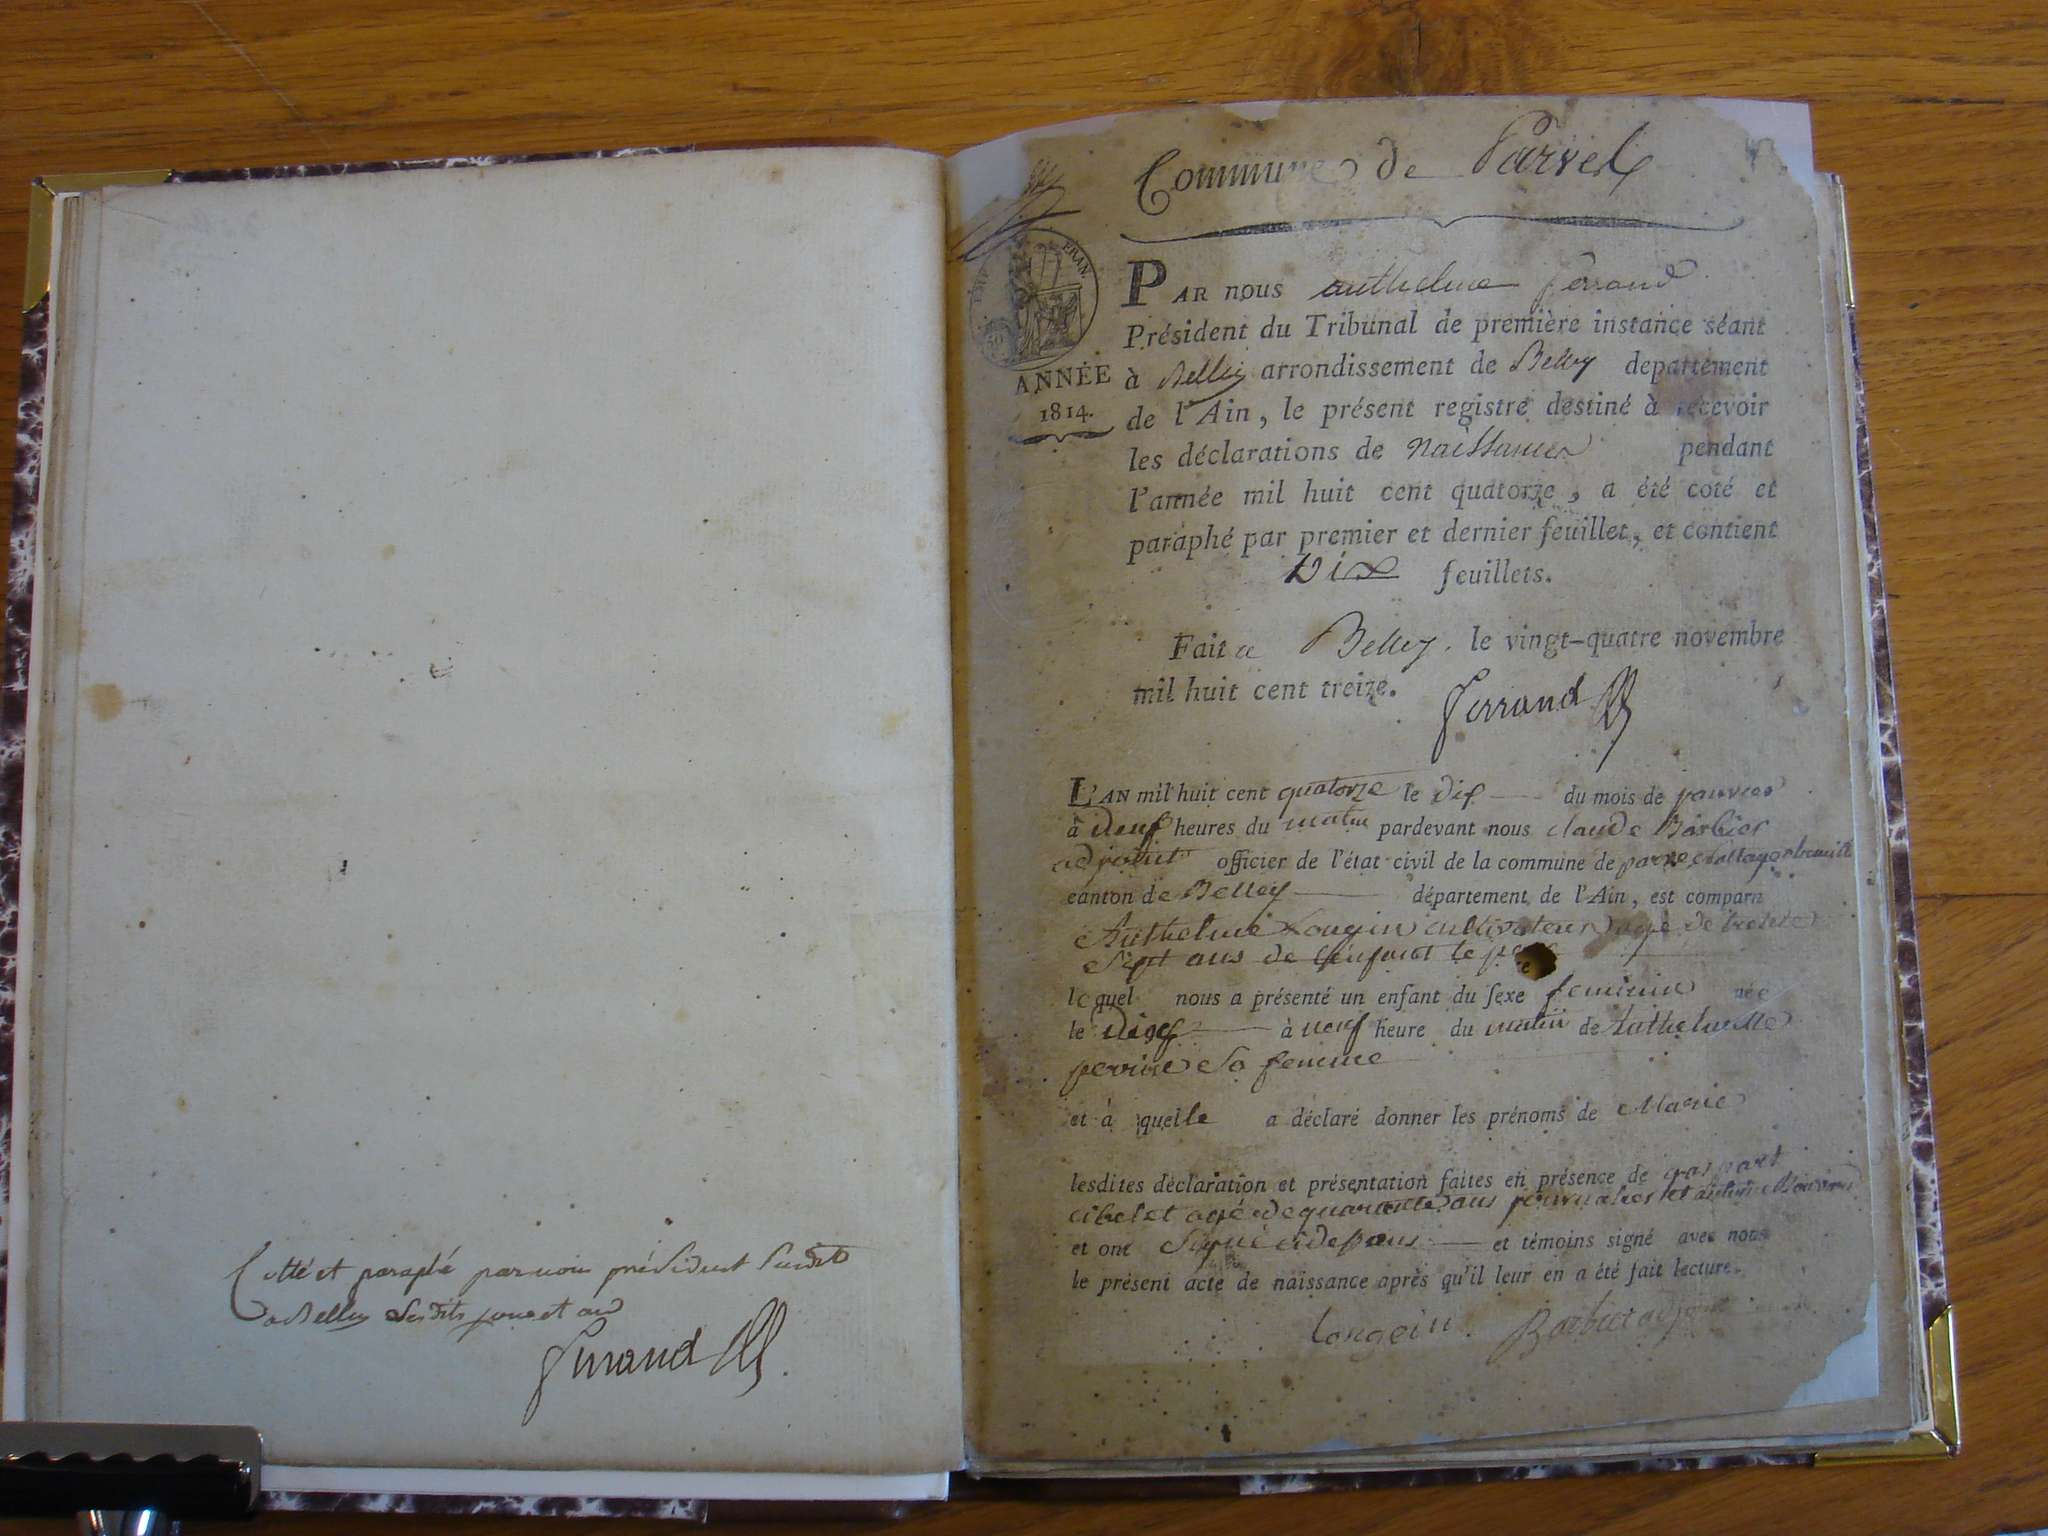 Cotté et paraphé par nous président susdit
a Belley lesdits jour et an
Ferrand
Commune de Parves
EMP. FRAN.
ANNÉE
1814.
PAR nous anthelme ferrand
Président du Tribunal de première instance séant
à Belley arrondissement de Belley departement
de l'Ain, le présent registre destiné à recevoir
les déclarations de naissances pendant
l'année mil huit cent quatorze, a été coté et
paraphé par premier et dernier feuillet, et contient
Dix feuillets.
Fait a Belley. le vingt-quatre novembre
mil huit cent treize.
Ferrand
L'AN mil huit cent quatorze le dix du mois de janvier
à neuf heures du matin pardevant nous claude Barbier
adjoint officier de l'état civil de la commune de parves
canton de Belley département de l'Ain, est comparu
Anthelme Longin cultivateur agé de trente
sept ans de l'enfant le
lequel nous a présenté un enfant du sexe feminin née
le dix à neuf heure du matin de Anthelmette
perrine sa femme
et à quelle a déclaré donner les prénoms de Marie
lesdites déclaration et présentation faites en présence de gaspart
cibelet agé de quarante ans journalier et
et ont signé et témoins signé avec nous
le présent acte de naissance après qu'il leur en a été fait lecture.
Longein. Barbier adjoint